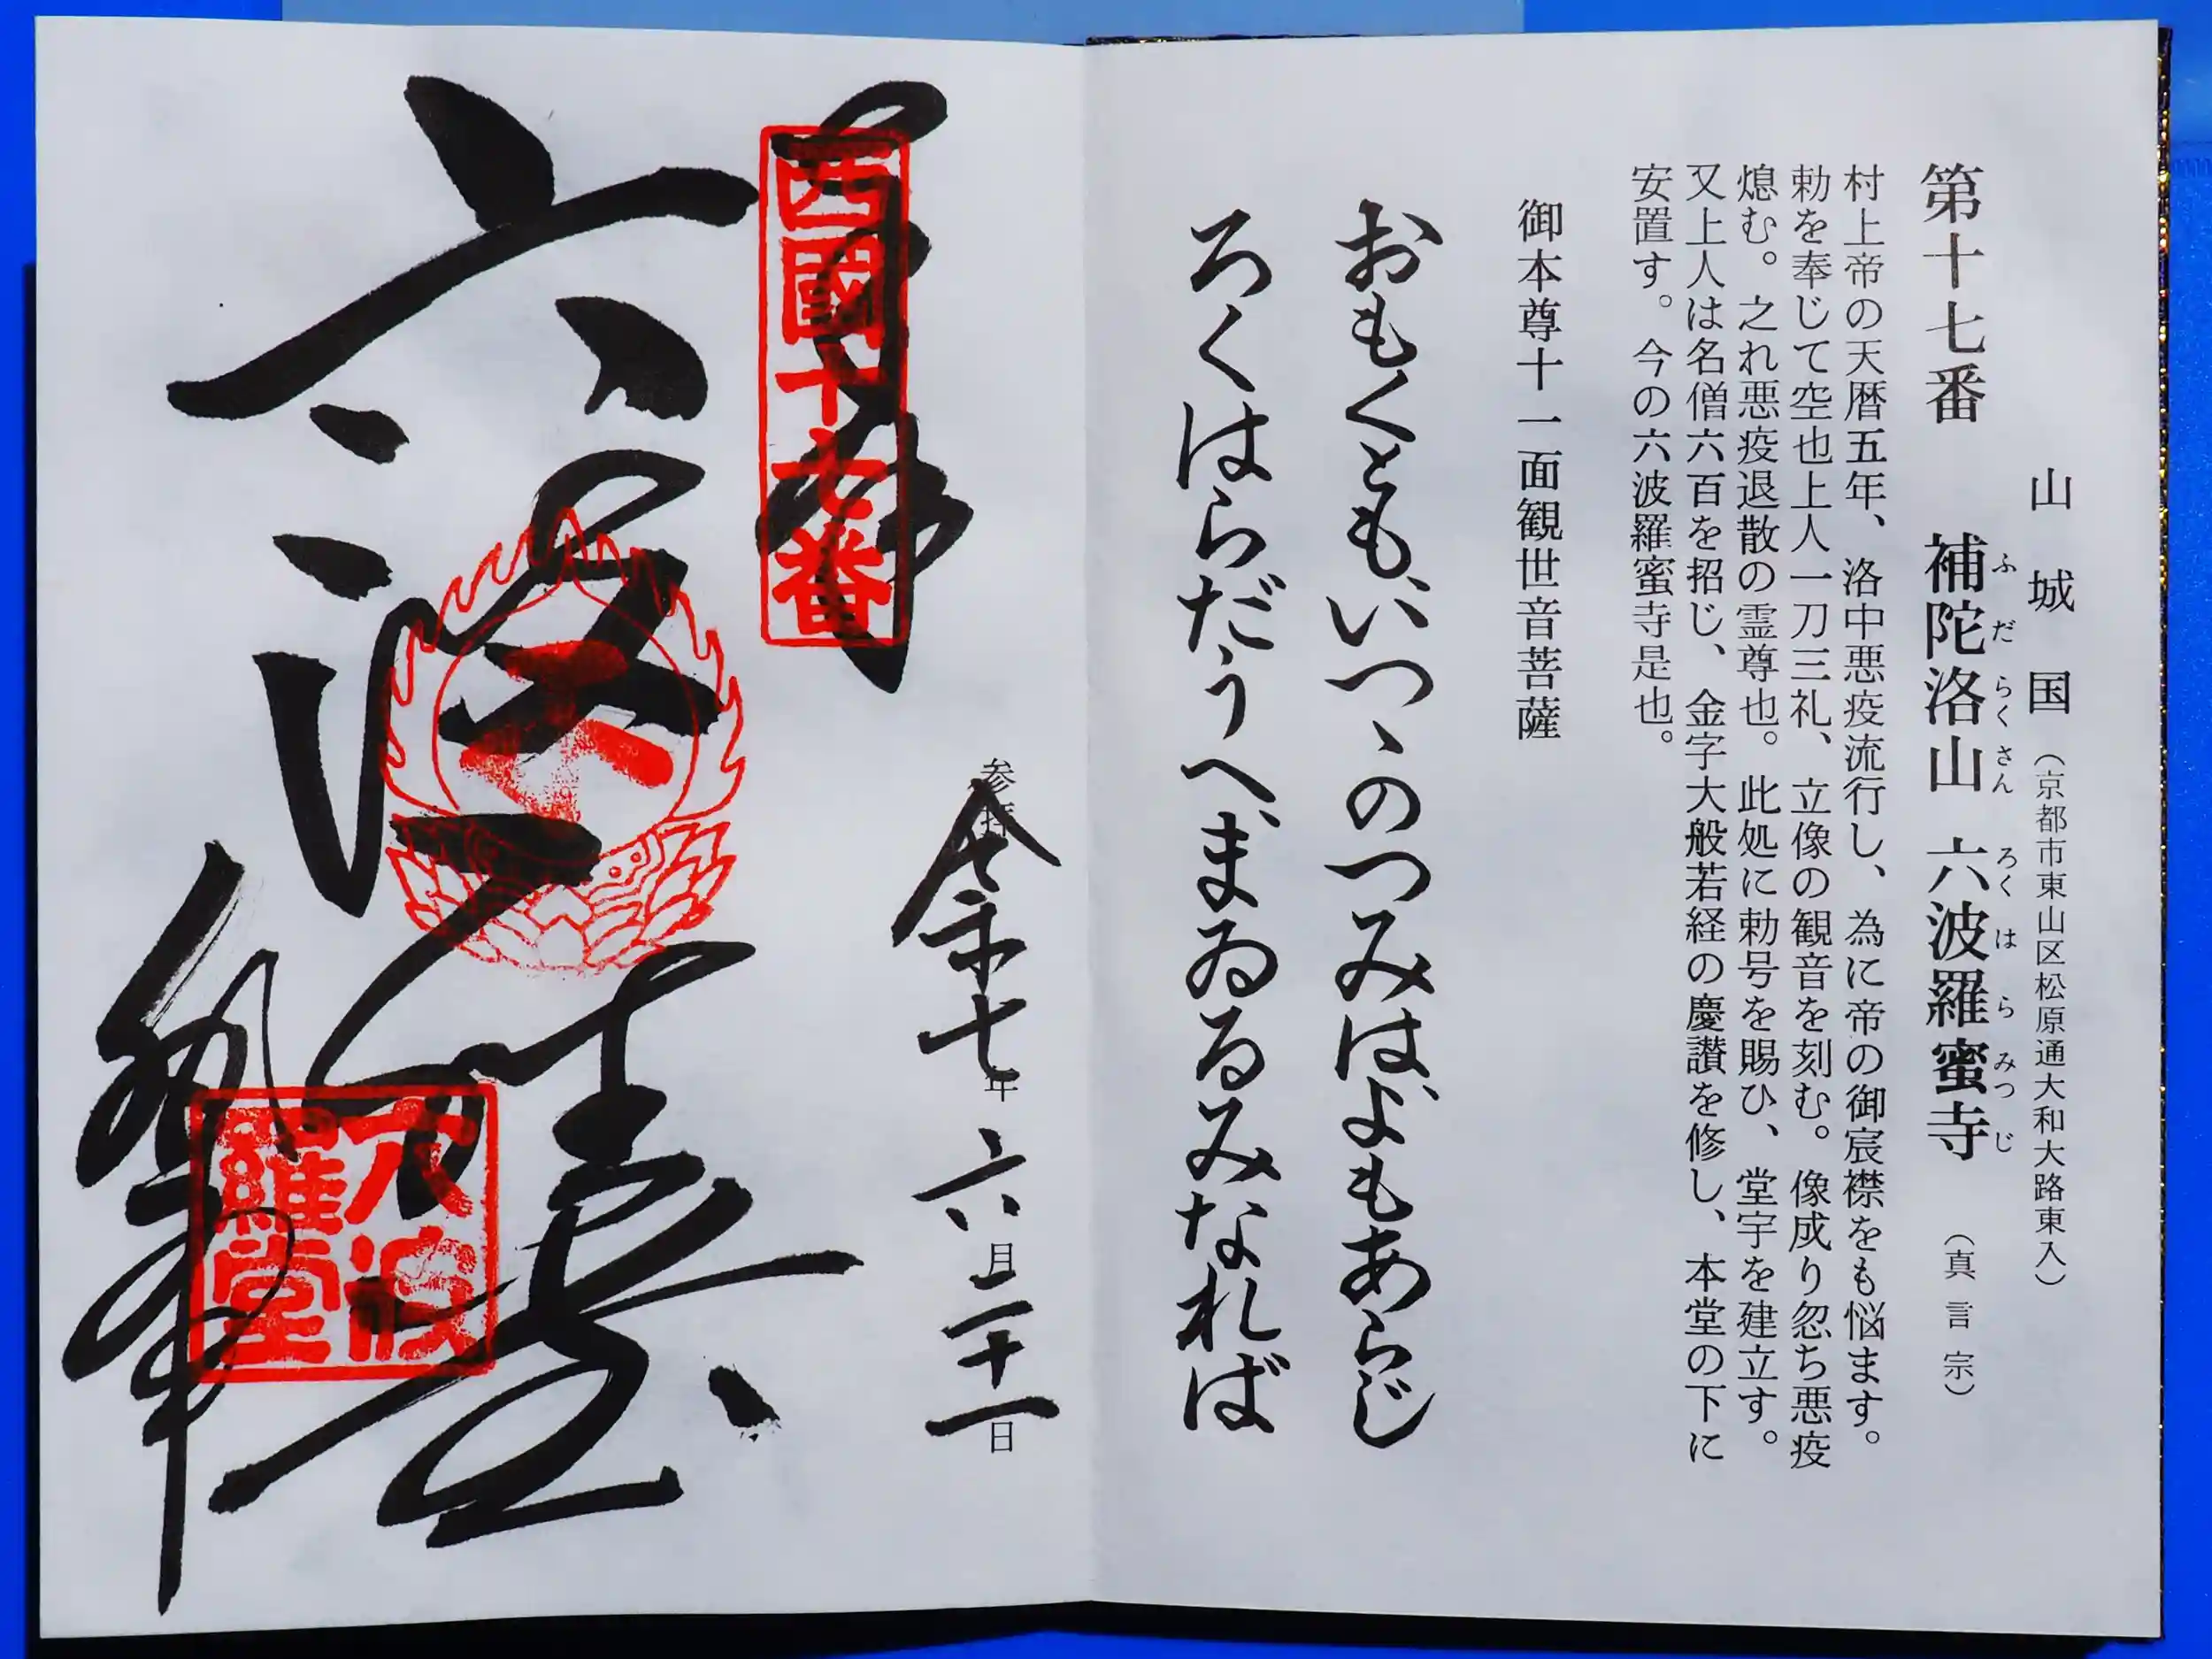 山城国（京都市東山区松原通大和大路東入）
第十七番 補陀洛山 六波羅蜜寺（真言宗）
ふだらくさん ろくはらみつじ
村上帝の天暦五年、洛中悪疫流行し、為に帝の御宸襟をも悩ます。
勅を奉じて空也上人一刀三礼、立像の観音を刻む。像成り忽ち悪疫
熄む。之れ悪疫退散の霊尊也。此処に勅号を賜ひ、堂宇を建立す。
又上人は名僧六百を招じ、金字大般若経の慶讃を修し、本堂の下に
安置す。今の六波羅蜜寺是也。
御本尊十一面観世音菩薩
おもくとも、いつゝのつみは、よもあらじ
ろくはらだうへ、まゐるみなれば
参拝
令和七年六月二十一日
奉拝
西國十七番
六波羅蜜寺
六波羅堂